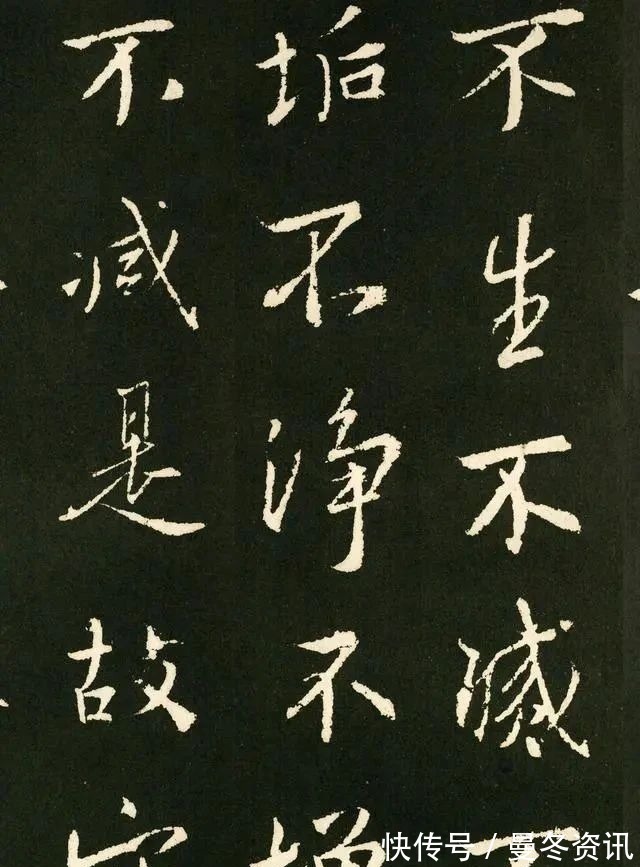 不生不滅不
垢不淨不增
不減是故空
快传号/曼冬资讯